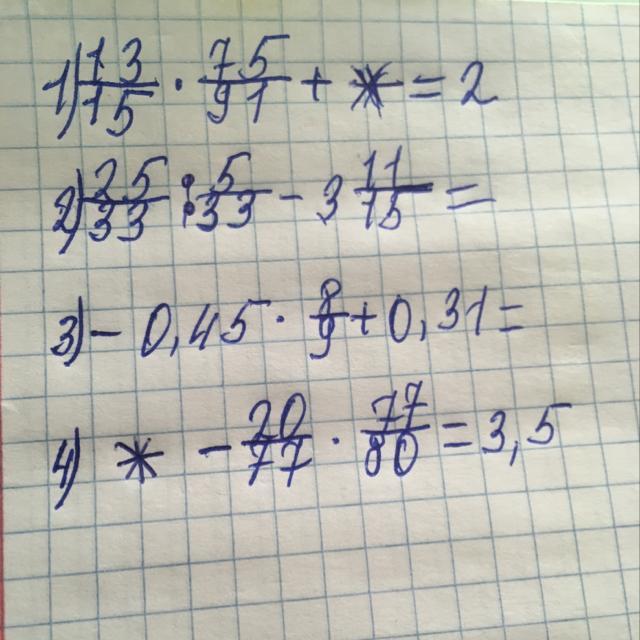 1) 13/15 · 75/91 + * = 2
2) 25/33 : 5/33 - 3 11/15 =
3) - 0,45 · 8/9 + 0,31 =
4) * - 20/77 · 77/80 = 3,5